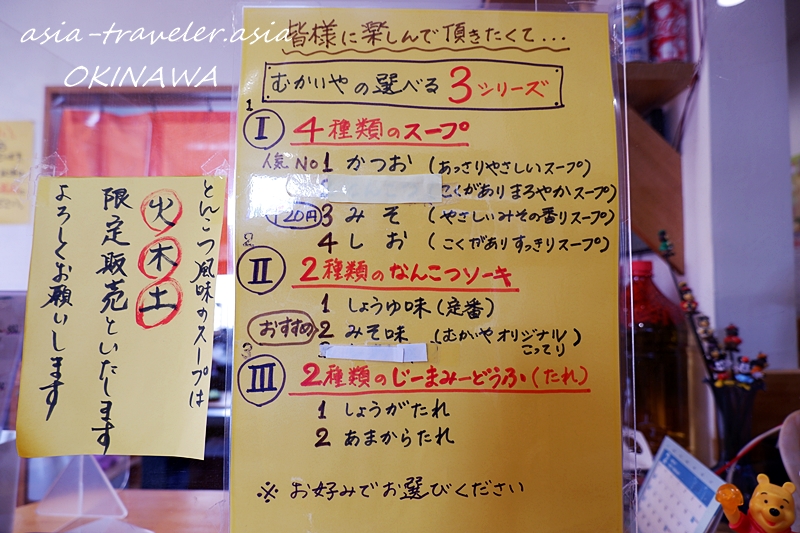 asia-traveler.asia
OKINAWA
皆様に楽しんで頂きたくて...
むかいやの選べる3シリーズ
1
Ⅰ 4種類のスープ
人気No1 かつお (あっさりやさしいスープ)
(こくがありまろやかスープ)
120円 3 みそ (やさしいみその香りスープ)
4 しお (こくがありすっきりスープ)
2
Ⅱ 2種類のなんこつソーキ
1 しょうゆ味(定番)
おすすめ 2 みそ味 (むかいやオリジナル)
こってり
3
Ⅲ 2種類のじーまみーどうふ(たれ)
1 しょうがたれ
2 あまからたれ
※ お好みでお選びください
とんこつ風味のスープは
火木土
限定販売といたします
よろしくお願いします